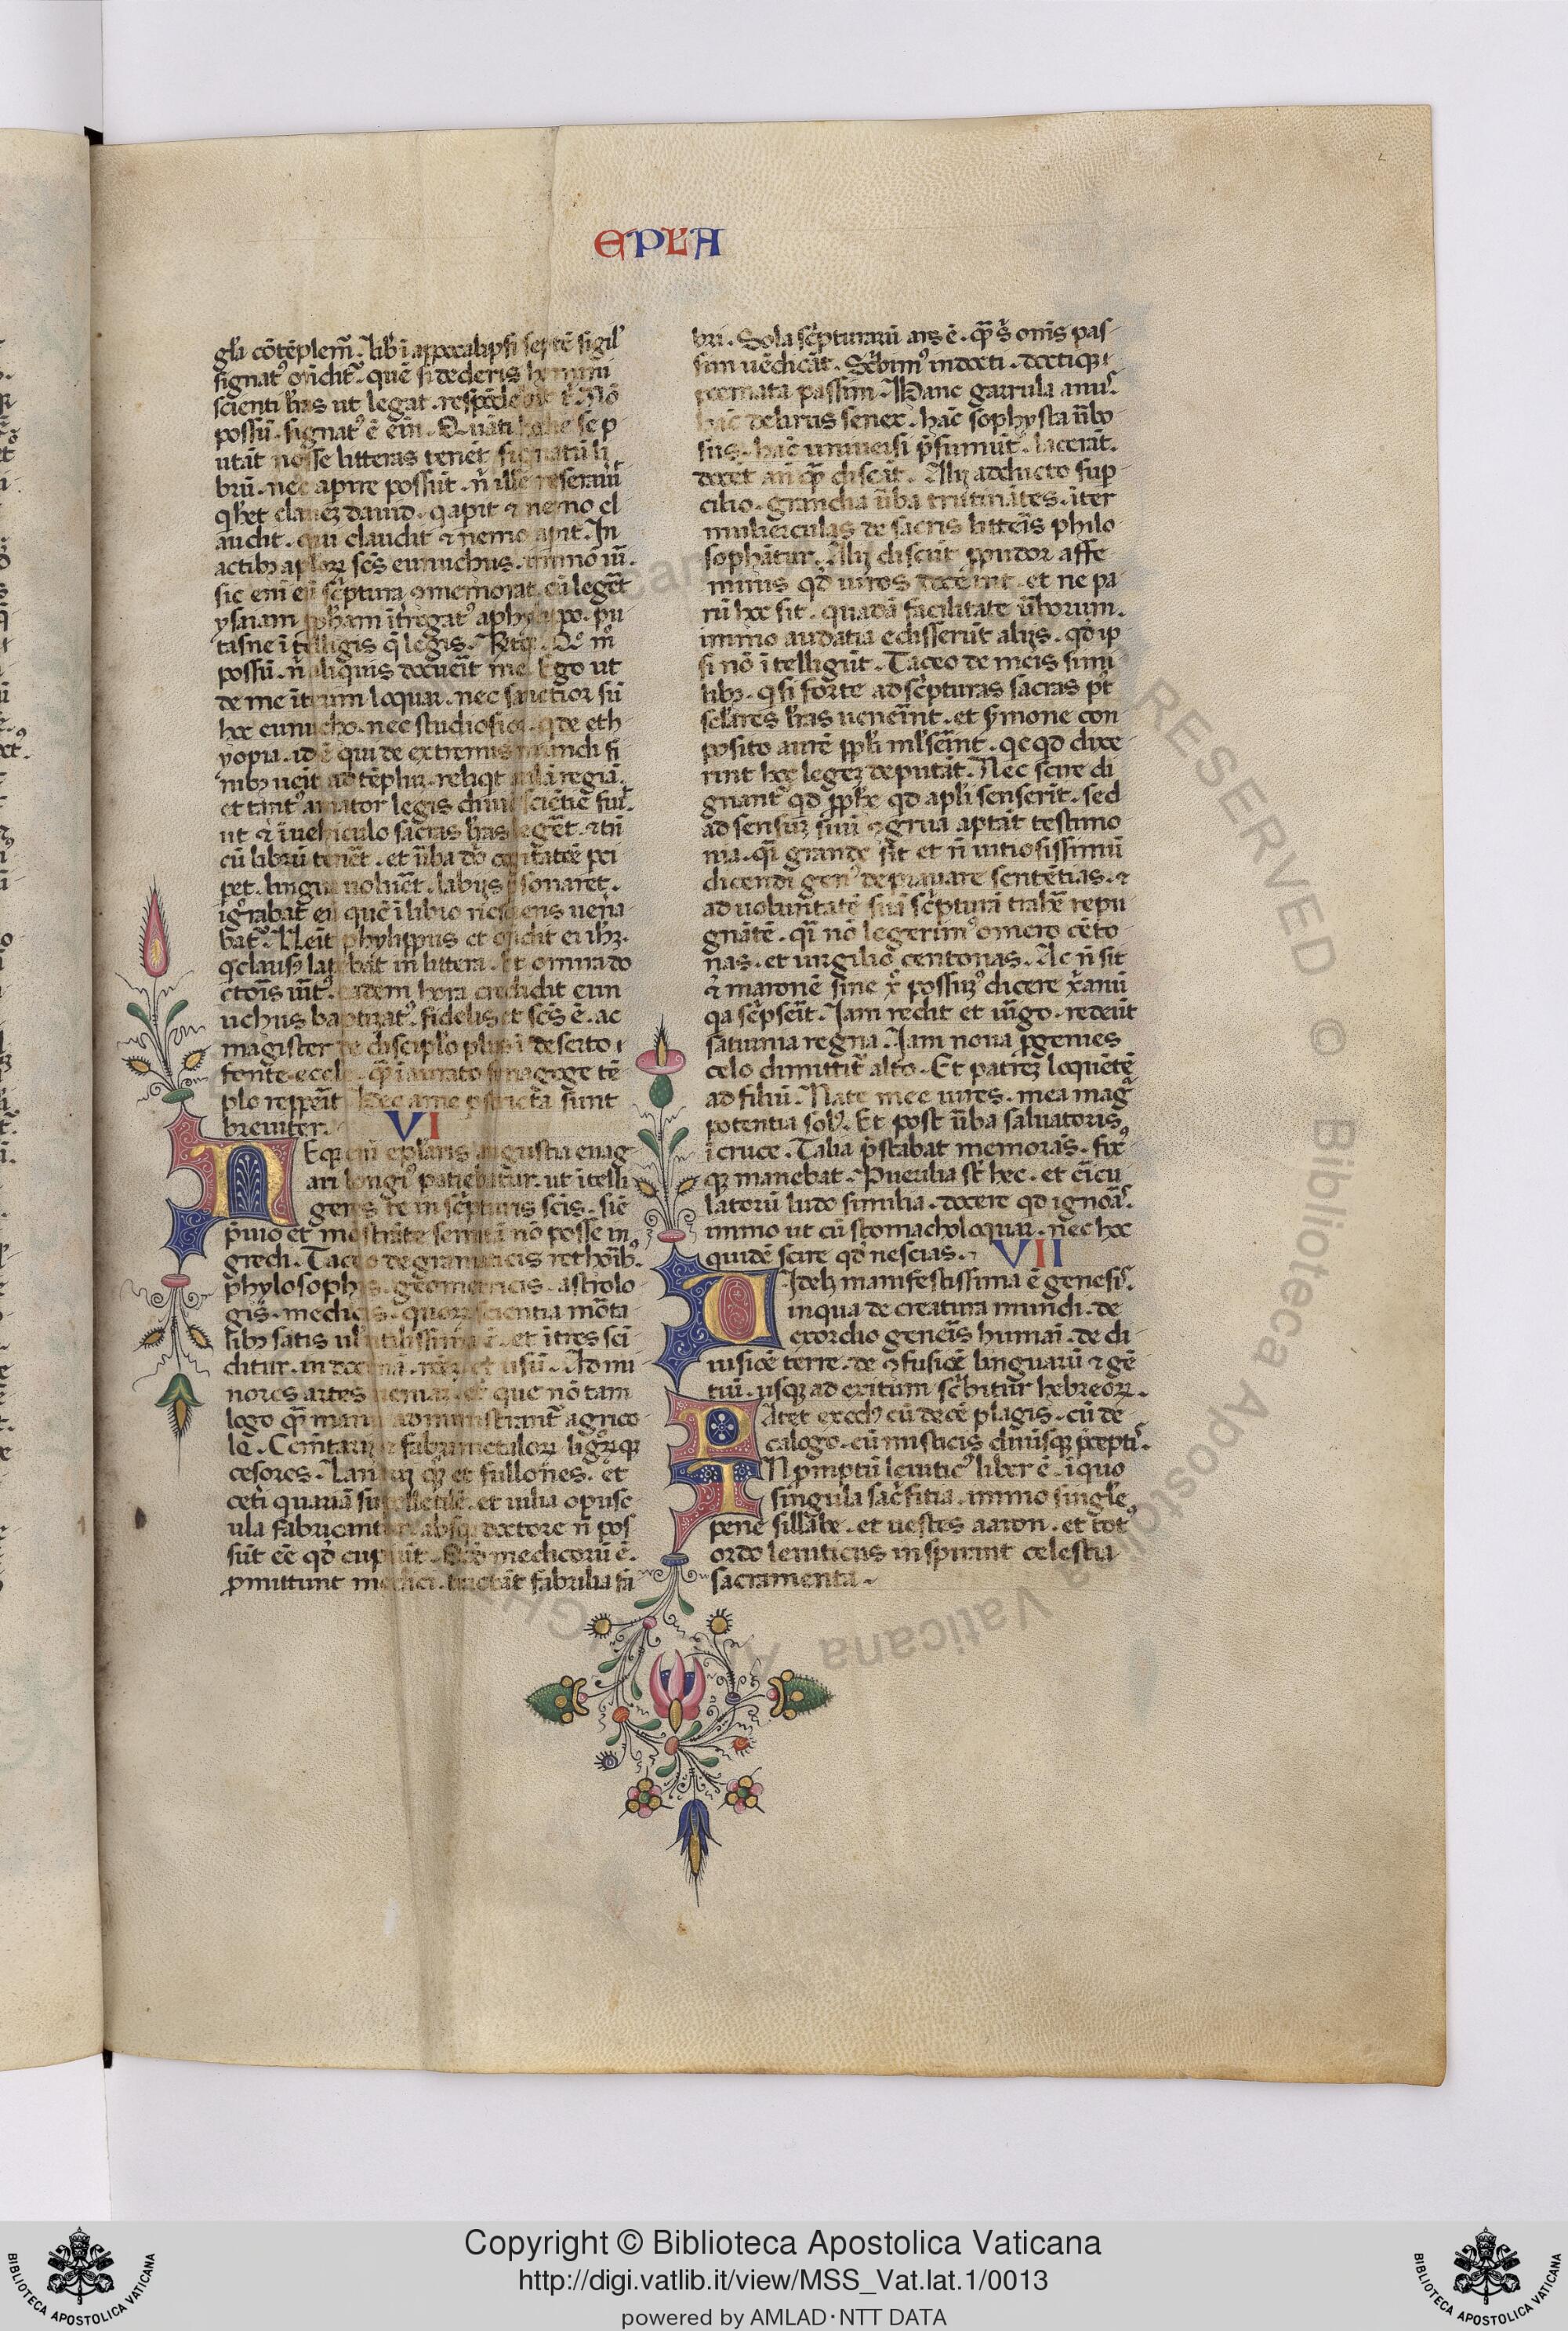 EPLA
gl̃a cõtẽplem̃. Lib̃ ĩ appocalipsi septẽ sigil'
signat᾽ oñdit᷑. quẽ si dederis homini
scienti l̃ras ut legat. respõdebit t᷑. Nõ
possũ. signat᾽ ẽ eni᷑. Quãti hodie se p
utãt nosse litteras tenet signatũ li
brũ. nec aprire possũt. ñ ille reserauit᷑
q̃ h̃et clauez dauid. q̃ apit ⁊ nemo cl
audit. qui claudit ⁊ nemo apit. In
actib₃ aplo₄ scs̃ eunuchus. immõ uir᷑.
sic enĩ eũ sc̃ptura ꝯmemorat. cũ leget᷑
ysaiam ꝓph̃am ĩt̃rogat᾽ a phylippo. pu
tasne ĩ telligis q̃ legis. Rñ. Quõ
possũ. ñ aliquis docuerit᷑ me. Ego ut
de me ĩterim loquar. nec sanctior sũ
hoc eunucho. nec studiosior. q de eth
yopia. id ẽ qui de extremis mundi fi
nib₃ uẽit ad tẽpluz. reliqt aulã regiã.
et tant᾽ amator legis diuineq₃ sciẽtie fuit᷑.
ut ⁊ ĩ uehiculo sacras l̃ras leget᷑. ⁊ tñ
cũ librũ tenet᷑. et ũba dñi cogitatiõe ꝯci
pet. lingua uolueret᷑. labiis ꝑsonaret.
igrabat᷑ eũ quẽ ĩ libro nesciens uena
bat᷑. Uẽit phylippus et oñdit ei ihz̃.
q̃ claus᾽ latebat in littera. Et o mira do
ctoris uirt᾽. eadem hora credidit eun
uchus baptizat᾽. fidelis et scs̃ ẽ. ac
magister de discipl̃o plus ĩ deserto
fonte ecclie. q̃ ĩ aurato synagoge tẽ
plo repperit᷑. Hec a me pstricta sunt
breuiter. VI
Neq₃ enĩ epl̃aris angustia euag
ari longi᾽ patiebatur. ut ĩtelli
geres te in sc̃pturis scĩs. sine
p̃uio et mõstrãte semitã nõ posse in
gredi. Taceo de gramaticis rethorib᾽.
phylosophis. geometricis. astrolo
gis. medicis. quo₄ scientia morta
lib₃ satis uł utilissima ẽ. et ĩ tres sci᷑
ditur. in doctrinã. rõez et usũ. Ad mi
nores artes ueniaz. et que nõ tam
logo q̃ manu administrant᷑. agrico
lę. Cem̃tarii. ⁊ fabri metallo₄ lignorũq₃
cesores. Lanarii q̃ et fullones. et
ceti᷑ qui uariã suppellectilẽ. et uilia opusc
ula fabricant᷑. absq₃ doctore ñ pos
sũt eẽ qd̃ cupiũt. Qd̃ medico₄ ẽ.
ꝓmittunt medici. tractãt fabrilia fa
bri. Sola sc̃pturarũ ars ẽ. quã s᷑ oms̃ pas
sim uẽdicãt. Sc̃bim᾽ indocti. doctiq₃
poemata passim. Hanc garrula anus᷑
hãc delirus senex. hãc sophysta ũbo
sus. hãc uniuersi p̃sumũt. lacerãt.
docẽt an᷑ q̃ discãt. Alij adducto sup
cilio. grandia ũba trutinãtes. ĩter
mulierculas de sacris litteris philo
sophãtur. Alij discũt ꝓ pudor a ffe
minis qd̃ uiros doceant. et ne pa
rũ hoc sit. quadã facilitate ũborum.
immo audatia edisserũt aliis. qd̃ ip
si nõ ĩ telligũt. Taceo de meis simi
lib₃. q si forte ad sc̃pturas sacras pt᷑
sclares l̃ras uenerint᷑. et s̃mone con
posito aurẽ ppl̃i mlserint᷑. qcqd dixe
rint hoc legez dei putãt. Nec scire di
gnant᷑ qd̃ ꝓph̃e qd̃ apl̃i senserit᷑. sed
ad sensuz suũ ꝯgrua aptãt testimo
nia. q̃i grande sit᷑ et ñ uitiosissimũ
dicendi gen᾽ deprauare sentẽtias. ⁊
ad uoluntatẽ suã sc̃pturã trahe᷑ repu
gnãtẽ. q̃i nõ legerim᾽ omero cẽto
nas. et uirgilio centonas. Ac ñ sit
⁊ maronẽ sine xp̃o possuz᾽ dicere xp̃ianũ
qa sc̃pserit᷑. Iam redit et uirgo. redeũt
saturnia regna. Iam noua ꝓgenies
celo dimittit᷑ alto. Et patrez loquẽtẽ
ad filiũ. Nate mee uires. mea magna᷑
potentia sol᾽. Et post ũba saluatoris
ĩ cruce. Talia p̃stabat memorãs. fix᾽
q₃ manebat. Puerilia st᷑ hec. et circu
latorũ ludo similia. docere qd ignoras᷑.
immo ut cũ stomacho loquar. nec hoc
quidẽ scire qd̃ nescias. VII
Uidelz manifestissima ẽ genesis᷑.
in qua de creatura mundi. de
exordio generis humani. de di
uisiõe terre. de ꝯfusiõe linguarũ ⁊ gẽ
tiũ. usq₃ ad exitum sc̃bitur hebreo₄.
Patet exod᾽ cũ decẽ plagis. cũ de
calogo. cũ misticis diuinisq₃ p̃ceptis᷑.
IN pmptũ leuitic᾽ liber ẽ. ĩ quo
singula sac̃fitia. immo singule
pene sillabe. et uestes aaron. et tot᾽
ordo leuiticus inspirant celestia
sacramenta.
Copyright © Biblioteca Apostolica Vaticana
http://digi.vatlib.it/view/MSS_Vat.lat.1/0013
powered by AMLAD · NTT DATA
BIBLIOTECA APOSTOLICA VATICANA
BIBLIOTECA APOSTOLICA VATICANA